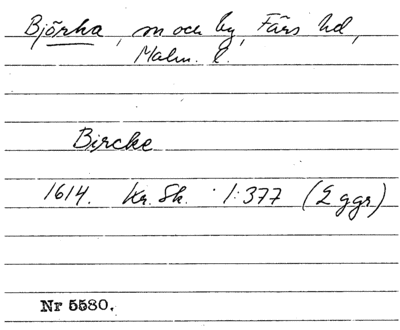 Björka, sn och by, Färs hd,
Malm. l.
Bircke
1614. Kr. Sk. 1:377 (2 ggr)
Nr 5580.